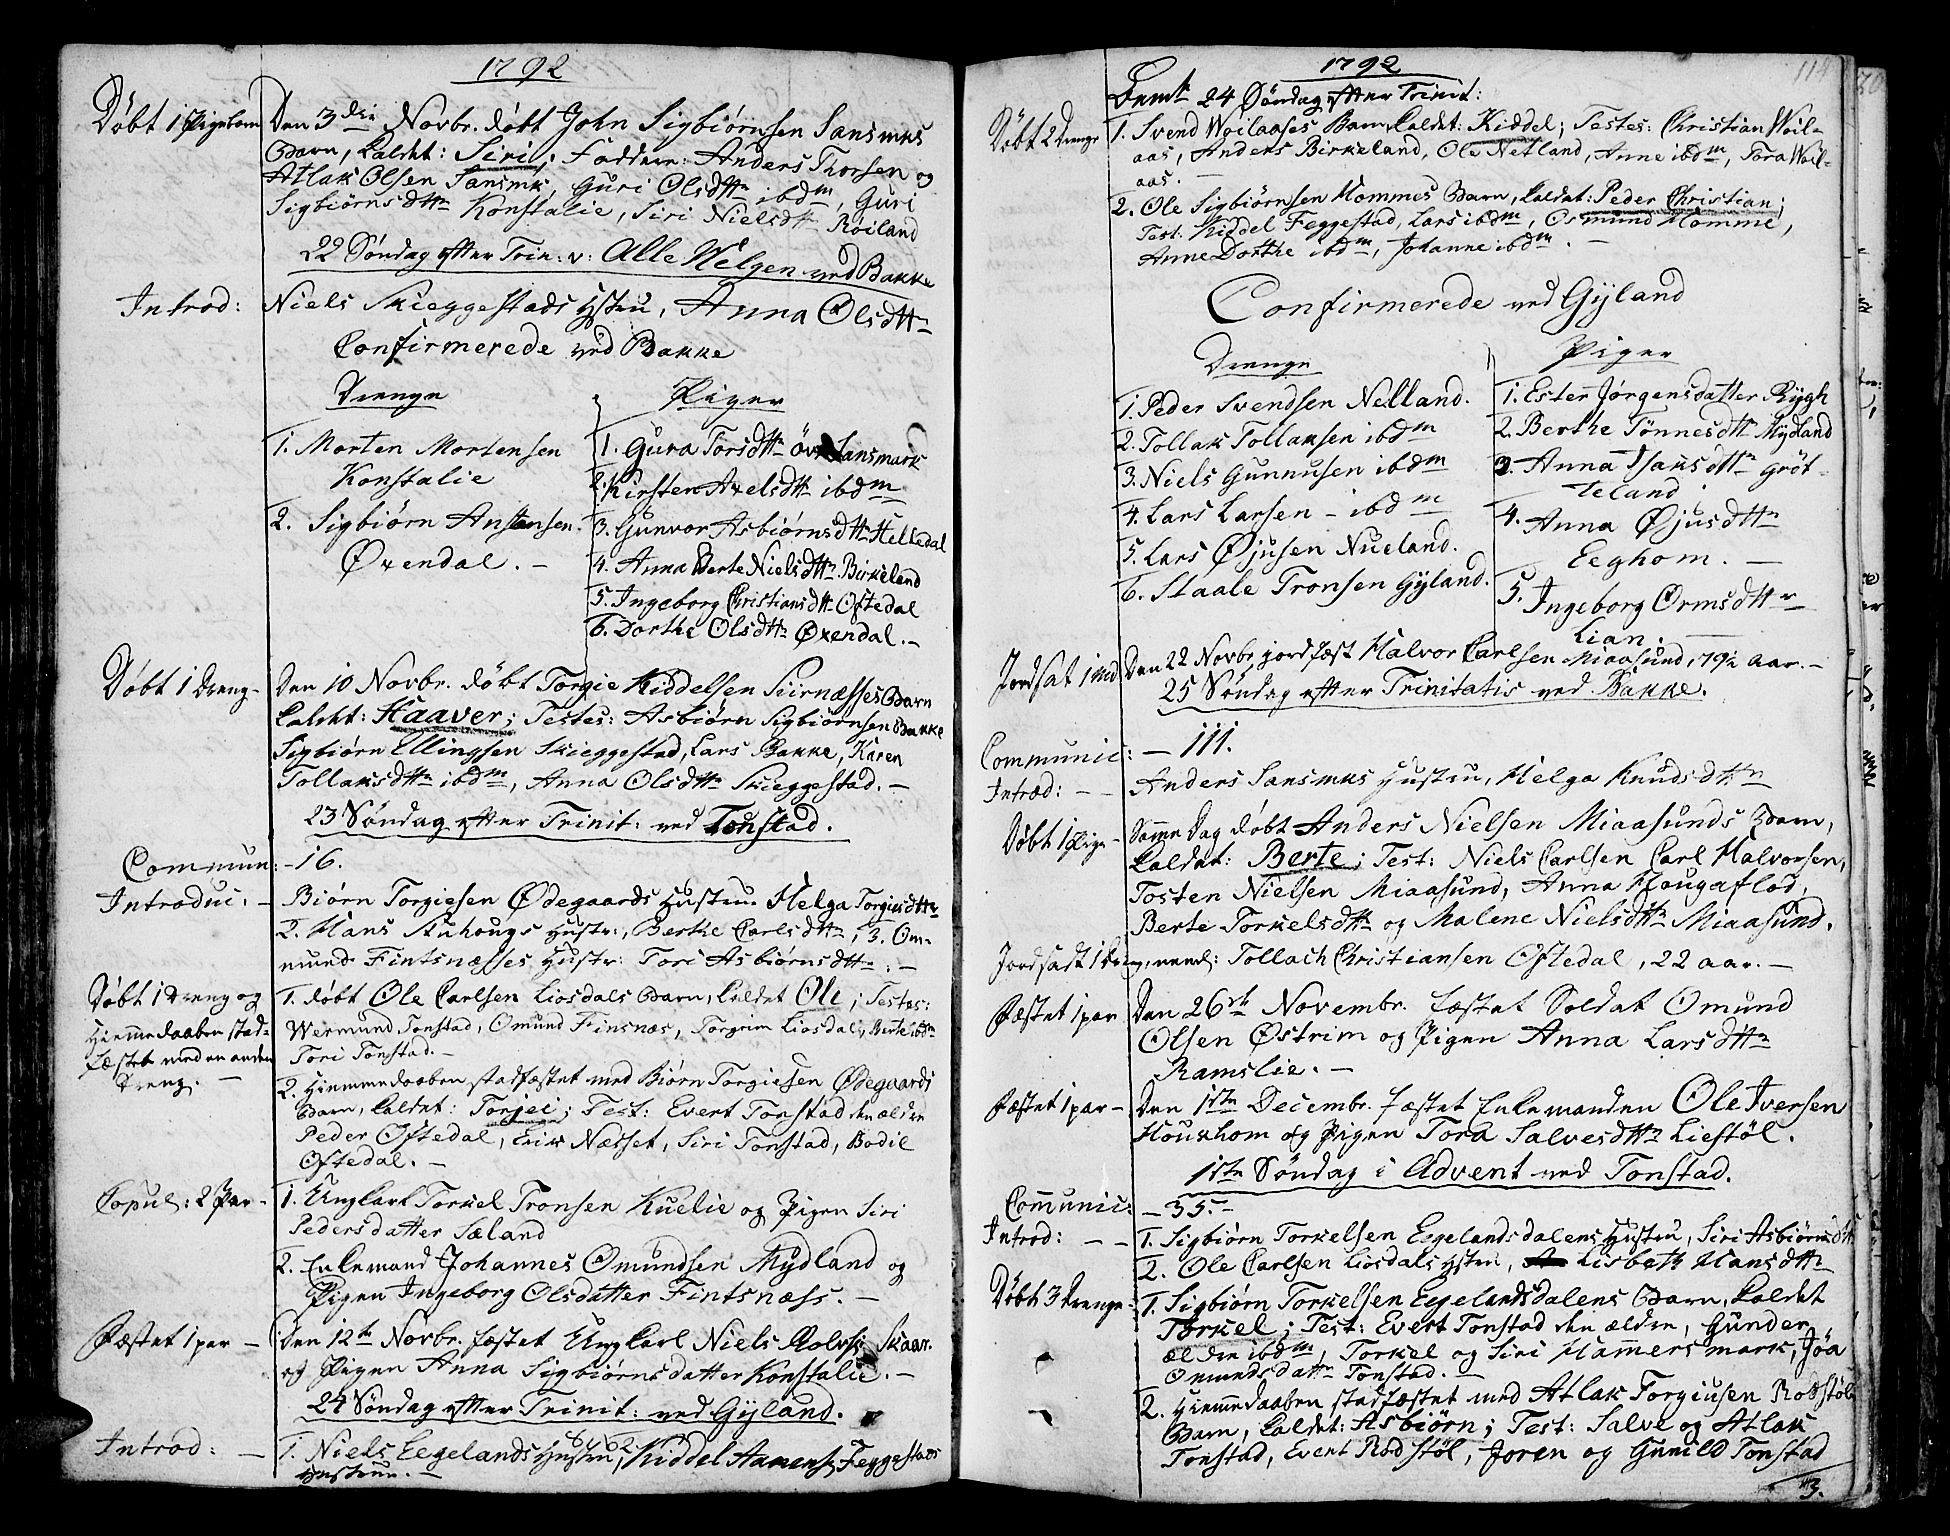 1792
Døbt 1 Pigebarn
Den 3die Novbr. døbt John Sigbiørnsen Sansmks
Barn, kaldet: Siri; Faddere: Anders Thorsen og
Atlak Olsen Sansmk, Guri Olsdttr ibdm, Guri
Sigbiørnsdttr Konstalie, Siri Nielsdttr Røiland
22 Søndag efter Trin: v: Alle Helgen ved Bakke
Introd:
Niels Skieggestads Hstru, Anna Olsdttr
Confirmerede ved Bakke
Drenge
1. Morten Mortensen
Konstalie
2. Sigbiørn Anstensen
Øxendal. -
Piger
1. Gura Torsdttr Sansmark
2. Kirsten Axelsdtt ibdm
3. Gunvor Asbiørnsdttr Helledal
4. Anna Berte Nielsdttr Birkeland
5. Ingeborg Christiansdtt Oftedal
6. Dorthe Olsdttr Øxendal. -
Døbt 1 Dreng -
Den 10 Novbr. døbt Torgie Kiddelsen Sirnæsses Barn
kaldet: Haaver; Testes: Asbiørn Sigbiørnsen Bakke
Sigbiørn Ellingsen Skieggestad, Lars Bakke, Karen
Tollaksdttr ibdm, Anna Olsdttr Skieggestad. -
23 Søndag efter Trinit: ved Tonstad.
Commun: - 16.
Introduc: -
Biørn Torgiesen Ødegaards Hustru Helga Torgiesdttr
2. Hans Hustr:, Berthe Carlsdttr, 3. Om-
mund Fintsnæsses Hustr: Tori Asbiørnsdttr. -
Døbt 1 Dreng og
Hiemmedaaben stad-
fæstet med en anden
Dreng. -
1. døbt Ole Carlsen Liosdals Barn, kaldet Ole; Testes:
Wermund Tonstad, Omund Finsnæs, Torgrim Liosdal, Berte ibdm
Tori Tonstad. -
2. Hiemmedaaben stadfæstet med Biørn Torgiesen Ødegaards
Barn, kaldet: Torjei; Test: Evert Tonstad den ældre
Peder Oftedal, Erik Næsset, Siri Tonstad, Bodil
Oftedal. -
Copul: 2 Par -
1. Ungkarl Torkel Tronsen Kuelie og Pigen Siri
Pedersdatter Sæland
2. Enkemand Johannes Omundsen Mydland og
Pigen Ingeborg Olsdatter Fintsnæss -
Fæstet 1 par -
Den 12te Novbr. fæstet Ungkarl Niels Skaar.
og Pigen Anna Sigbiørnsdatter Konstalie. -
24 Søndag efter Trinit: ved Gyland.
Introd: -
1. Niels Eegelands Hustru, 2 Kiddel Feggestads
Hustrue. -
1792
114
Demt 24 Søndag efter Trinit:
Døbt 2 Drenge
1. Svend Woilaases Barn, kaldet: Kiddel; Testes: Christian Woil-
aas, Anders Birkeland, Ole Netland, Anne ibdm, Tora Woil-
aas. -
2. Ole Sigbiørnsen Mommes Barn, kaldet: Peder Christian;
Test: Kiddel Feggestad, Lars ibdm, Osmund Momme,
Anne Dorthe ibdm, Johanne ibdm. -
Confirmerede ved Gyland
Drenge
1. Peder Svendsen Nelland.
2. Tollak Tollaksen ibdm
3. Niels Gunnusen ibdm
4. Lars Larsen - ibdm
5. Lars Øjusen Nueland.
6. Staale Tronsen Gyland.
Piger
1. Ester Jørgensdatter Rygh
2. Berthe Tønnesdtt Mydland
3. Anna Isaksdttr Grøt-
teland
4. Anna Øjusdttr
Eeghom. -
5. Ingeborg Ormsdttr
Lian. -
Jordsat 1 Md
Den 22 Novbr jordfæst Halvor Carlsen Miaasund, 79½ aar. -
25 Søndag efter Trinitatis ved Bakke.
Communic: - 111.
Introd: - -
Anders Sansmks Hustru, Helga Knudsdttr
Døbt 1 Pige -
Samme Dag døbt Anders Nielsen Miaasunds Barn,
kaldet: Berte; Test: Niels Carlsen Carl Halvorsen,
Tosten Nielsen Miaasund, Anna Hougaflod,
Berte Torkelsdttr og Malene Nielsdttr Miaasund.
Jordsadt 1 Dreng, neml: Tollach Christiansen Oftedal, 22 aar. -
Fæstet 1 par
Den 26de Novembr. fæstet Soldat Omund
Olsen Østrim og Pigen Anna Larsdttr
Ramslie. -
Fæstet 1 par -
Den 1ste Decembr. fæstet Enkemanden Ole Iversen
Houghom og Pigen Tora Salvesdttr Liestøl.
1ste Søndag i Advent ved Tonstad.
Communic: - 35. -
Introd: - -
1. Sigbiørn Torkelsen Egelandsdalens Hustru, Siri Asbiørnsdtt
2. Ole Carlsen Liosdals Hstru, Lisbeth Hansdttr
Døbt 3 Drenge:
1. Sigbiørn Torkelsen Egelandsdalens Barn, kaldet
Torkel; Test: Evert Tonstad den ældre, Gunder
ældre ibdm, Torkel og Siri Hammersmark, Jøa
Omundsdattr Tonstad. -
2. Hiemmedaaben stadfæstet med Atlak Torgiusen Rodstøls
Barn, kaldet: Asbiørn; Test: Salve og Atlak
Tonstad, Evert Rodstøl, Joren og Gunild Tonstad
3.